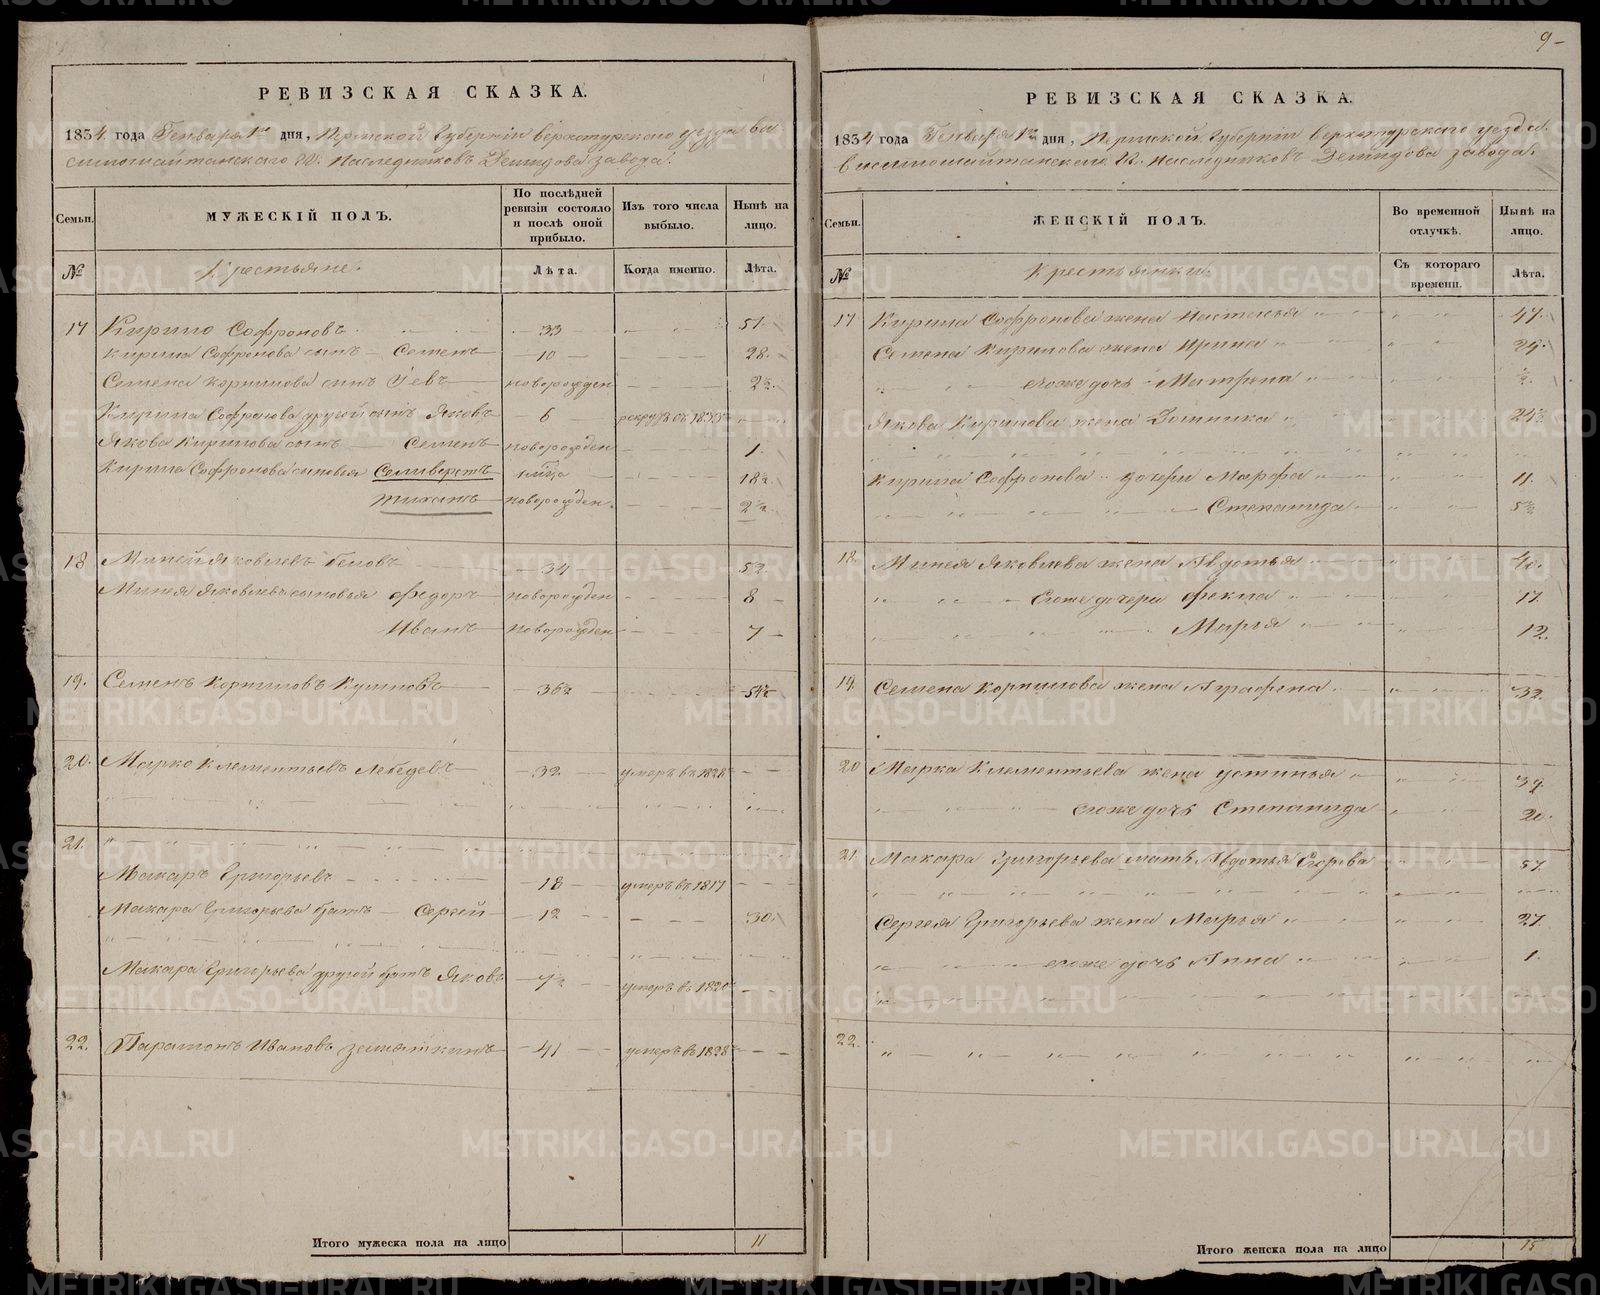 9
РЕВИЗСКАЯ СКАЗКА.
1834. года Генваря 1го дня, Пермской Губернiи Верхотурскаго уезда Ви
симошайтанскаго Н. Наследниковъ Демидова завода.
Семьи.
МУЖЕСКIЙ ПОЛЪ.
По послѣдней ревизiи состояло и послѣ оной прибыло.
Изъ того числа выбыло.
Нынѣ на лицо.
№
Крестьяне.
Лѣта.
Когда именно.
Лѣта.
17 Кирило Софроновъ 33 51.
Кирила Софронова сынъ Семенъ 10 28.
Семена сынъ новорожден 2½
Кирила Софронова другой сынъ Яковъ 6 1833
Якова Кирилова сынъ Семенъ новорожден 1.
Кирила Софронова сыновья Селиверстъ 18½
новорожден. 2½
18 Миней Яковлевъ Беловъ 34 52.
Минея Яковлева сыновья Федоръ новорожден 8
Иванъ новорожден 7
19. Семенъ Корниловъ 36½ 54½
20. Марко Клементьевъ Лебедевъ 32 умеръ въ 1828
21.
Макаръ Григорьевъ 18 умеръ въ 1817
Макара Григорьева братъ Сергей 12 30.
Макара Григорьева другой братъ Яковъ 7½ умеръ въ 1820
22. Парамонъ Ивановъ 41 умеръ въ 1828
Итого мужеска пола на лицо 11
РЕВИЗСКАЯ СКАЗКА.
1834 года Генваря 1го дня, Пермской Губернiи Верхотурскаго уезда
Висимошайтанскаго Н. Наследниковъ Демидова завода.
Семьи.
ЖЕНСКIЙ ПОЛЪ.
Во временной отлучкѣ.
Нынѣ на лицо.
№
Крестьянки.
Съ котораго времени.
Лѣта.
17 Кирила Софронова жена Настасья 47.
Семена Кирилова жена Ирина
егоже дочь Матрена ½
Якова Кирилова жена Домника 24½
Кирила Софронова дочери Марфа 11.
Степанида 5½
18. Минея Яковлева жена Авдотья 40.
егоже дочери Фекла 17.
Марья 12.
19. Семена Корнилова жена Аграфена 32.
20 Марка Клементьева жена Устинья 39.
егоже дочь Степанида 20.
21. Макара Григорьева мать Авдотья Егорова 57.
Сергея Григорьева жена Марья 27
егоже дочь Анна 1.
22.
Итого женска пола на лицо 15
METRIKI.GASO-URAL.RU